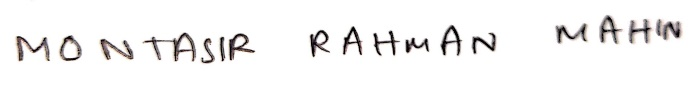 MONTASIR RAHMAN MAHIN